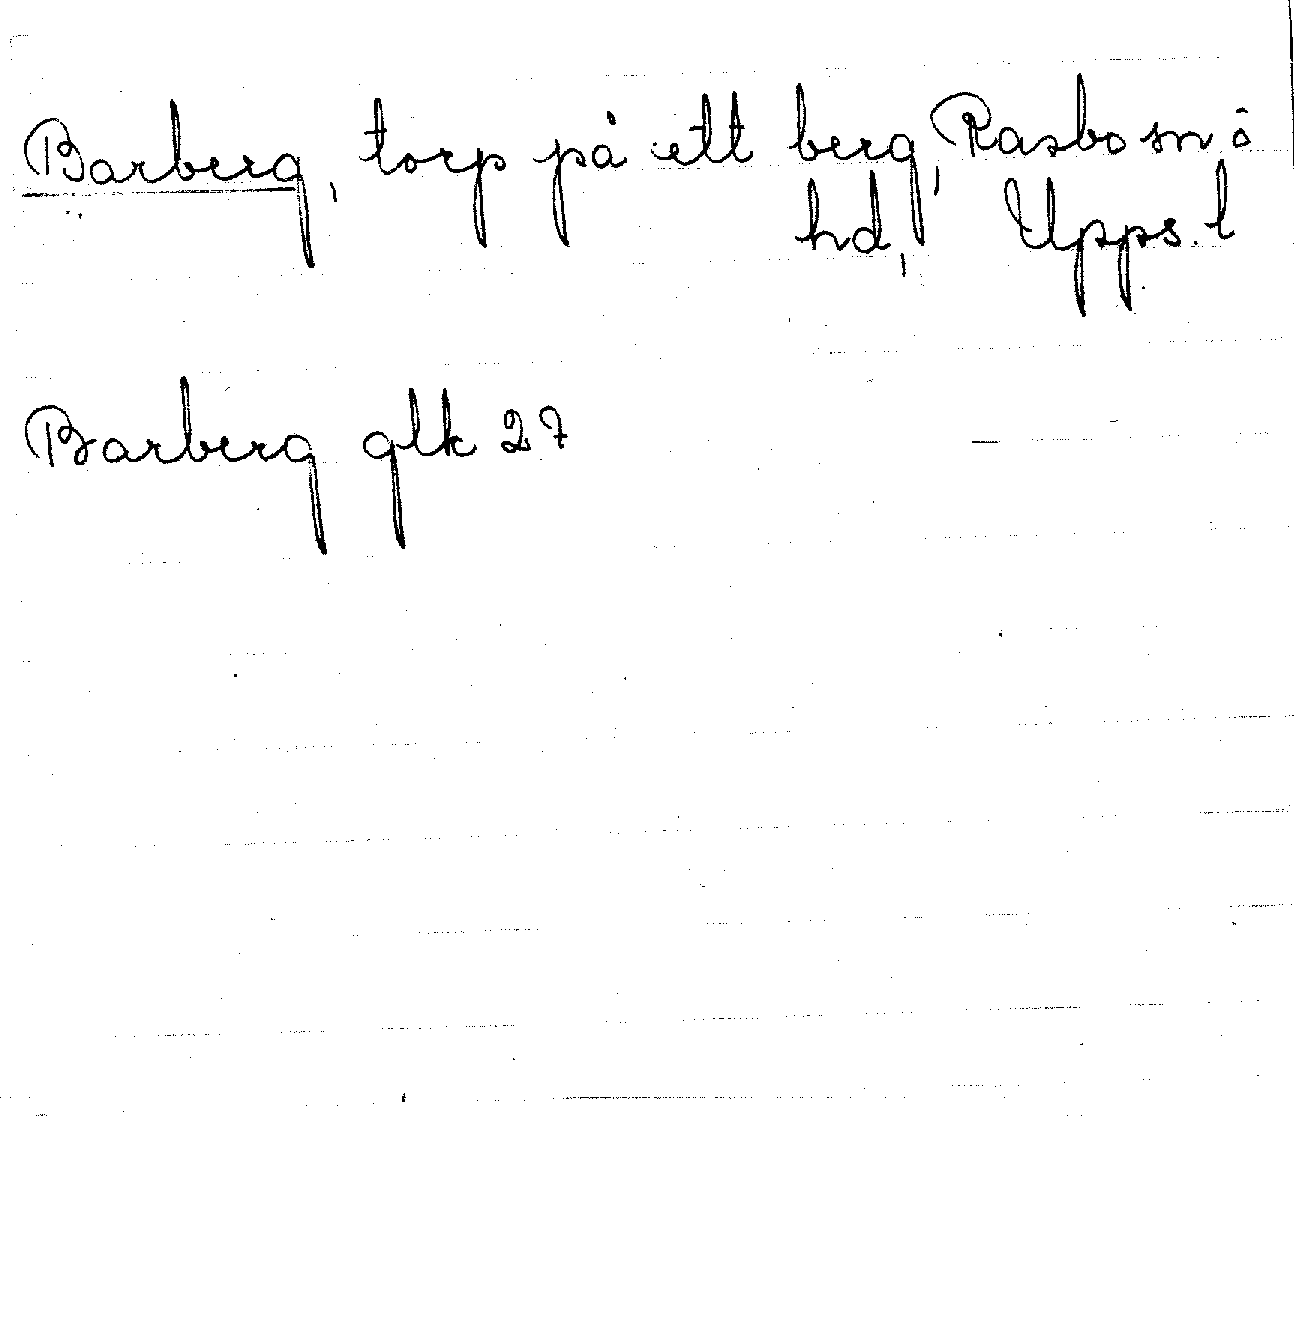 Barberg, torp på ett berg, Rasbo sn o
hd, Upps. l
Barberg glk 27